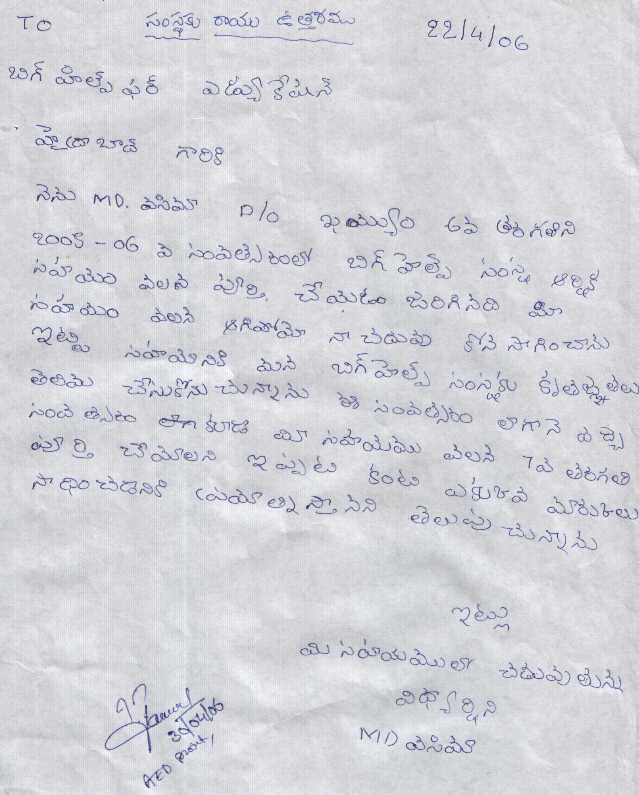 TO
సంస్థకు రాయు ఉత్తరము
22/4/06
బిగ్ హెల్ప్ ఫర్ ఎడ్యుకేషన్
హైద్రాబాద్ గారికి
నేను MD. వసీమా D/o ఖయ్యుం 6వ తరగతిని
2005-06 వ సంవత్సరంలో బిగ్ హెల్ప్ సంస్థ ఆర్థిక
సహయం వలన పూర్తి చేయడం జరిగినది మీ
సహయం వలన ఆగిపోయే నా చదువు కొన సాగించాను
ఇట్టి సహయానికి మన బిగ్ హెల్ప్ సంస్థకు కృతజ్ఞతలు
తెలియ చేసుకొనుచున్నాను ఈ సంవత్సరం లాగానే వచ్చు
సంవత్సరం కూడా మీ సహయము వలన 7వ తరగతి
పూర్తి చేయాలని ఇప్పటి కంటె ఎక్కువ మార్కులు
సాధించడానికి ప్రయత్నిస్తానని తెలుపు చున్నాను
ఇట్లు
మి సహయములో చదువుతును
విద్యార్థిని
MD వసీమా
30/04/06